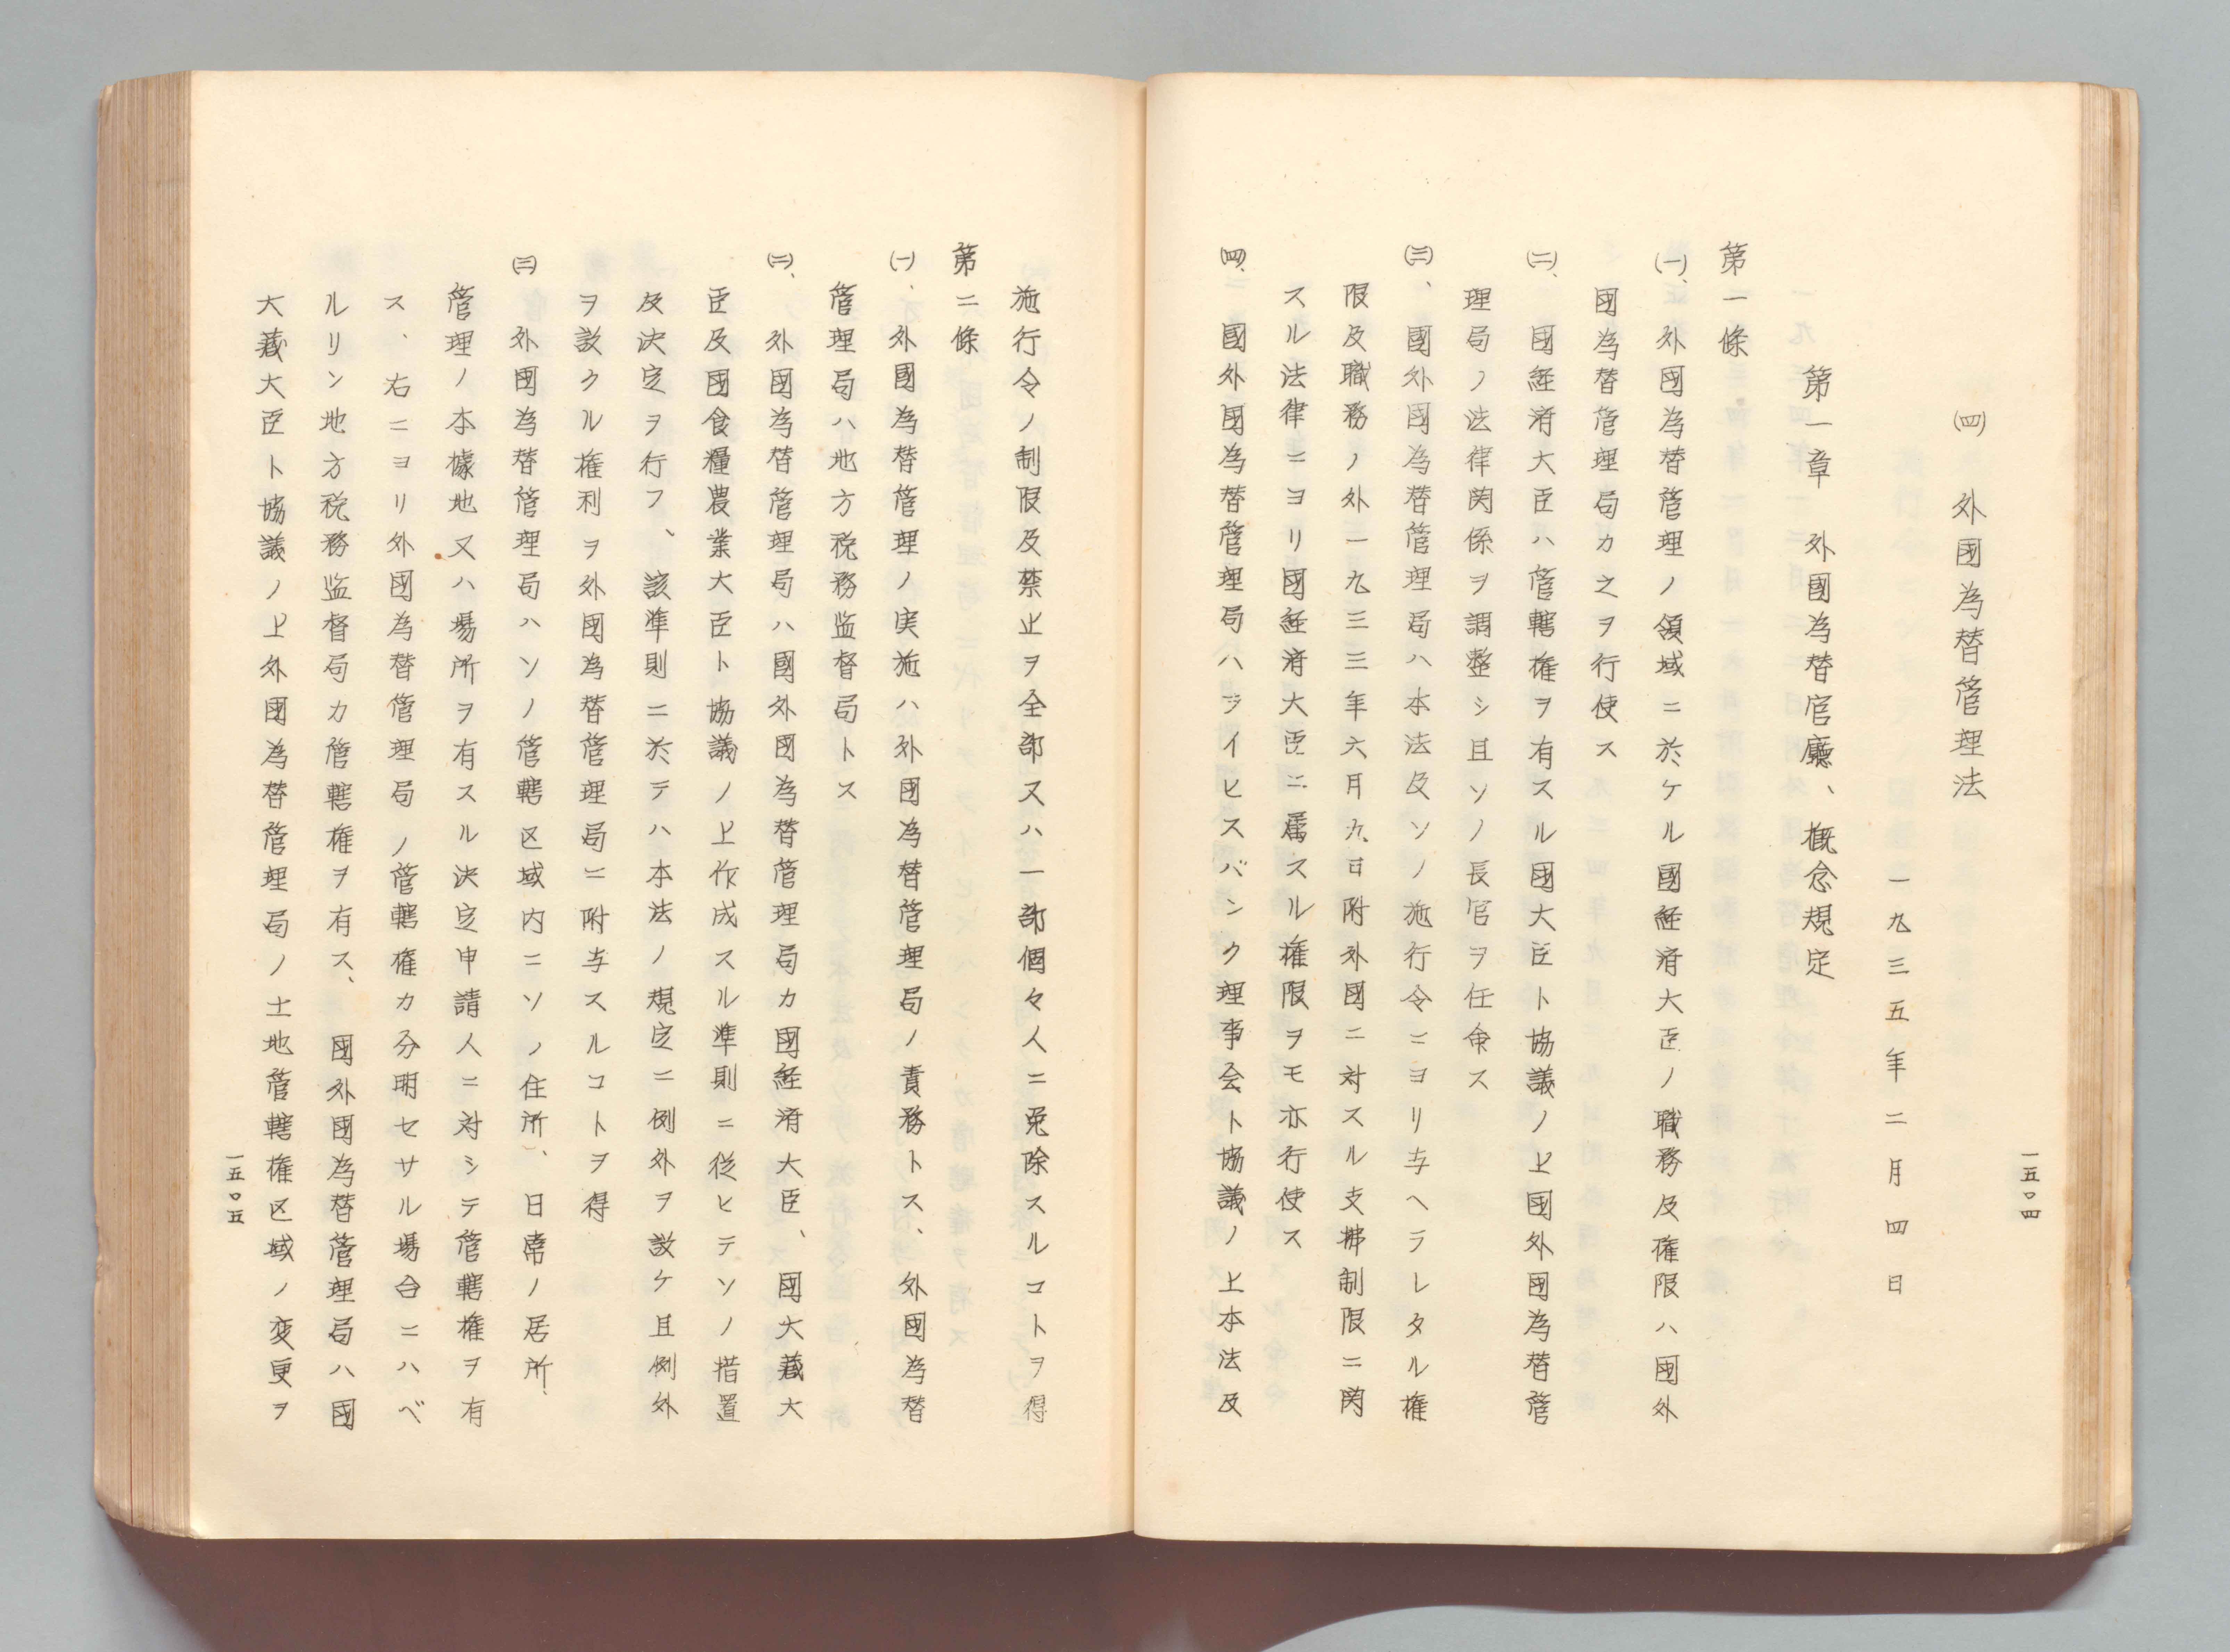 ㈣　外國為替管理法
一九三五年二月四日
第一章　外國為替官廳、概念規定
第一條
㈠、外國為替管理ノ領域ニ於ケル國経済大臣ノ職務及権限ハ國外
國為替管理局カ之ヲ行使ス
㈡、國経済大臣ハ管轄権ヲ有スル國大臣ト協議ノ上國外國為替管
理局ノ法律関係ヲ調整シ且ソノ長官ヲ任命ス
㈢、國外國為替管理局ハ本法及ソノ施行令ニヨリ与ヘラレタル権
限及職務ノ外一九三三年六月九日附外國ニ対スル支拂制限ニ関
スル法律ニヨリ國経済大臣ニ属スル権限ヲモ亦行使ス
㈣、國外國為替管理局ハライヒスバンク理事会ト協議ノ上本法及
一五〇四
施行令ノ制限及禁止ヲ全部又ハ一部個々人ニ免除スルコトヲ得
第二條
㈠、外國為替管理ノ実施ハ外國為替管理局ノ責務トス、外國為替
管理局ハ地方税務監督局トス
㈡、外國為替管理局ハ國外國為替管理局カ國経済大臣、國大蔵大
臣及國食糧農業大臣ト協議ノ上作成スル準則ニ従ヒテソノ措置
及決定ヲ行フ、該準則ニ於テハ本法ノ規定ニ例外ヲ設ケ且例外
ヲ設クル権利ヲ外國為替管理局ニ附与スルコトヲ得
㈢　外國為替管理局ハソノ管轄区域内ニソノ住所、日常ノ居所、
管理ノ本據地又ハ場所ヲ有スル決定申請人ニ対シテ管轄権ヲ有
ス、右ニヨリ外國為替管理局ノ管轄権カ分明セサル場合ニハベ
ルリン地方税務監督局カ管轄権ヲ有ス、國外國為替管理局ハ國
大蔵大臣ト協議ノ上外國為替管理局ノ土地管轄権区域ノ変更ヲ
一五〇五